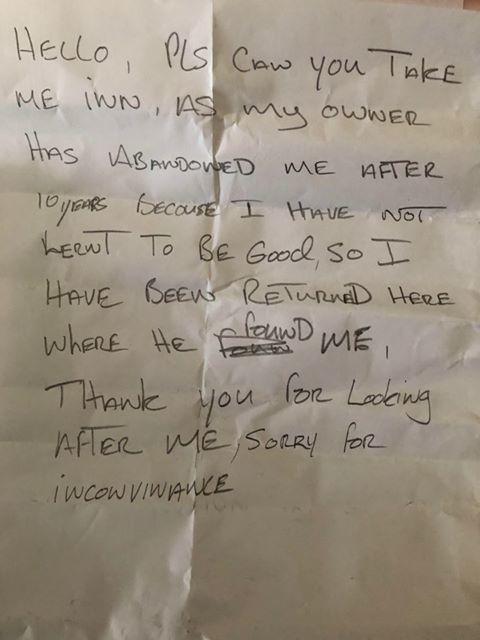 HELLO, PLS CAN YOU TAKE
ME INN, AS my OWNER
HAS ABANDONED ME AFTER
10 YEARS BECOUSE I HAVE NOT
LERNT TO BE GOOD, SO I
HAVE BEEN RETURNED HERE
WHERE HE FOUND ME,
THANK YOU FOR LOOKING
AFTER ME, SORRY FOR
INCONVINANCE